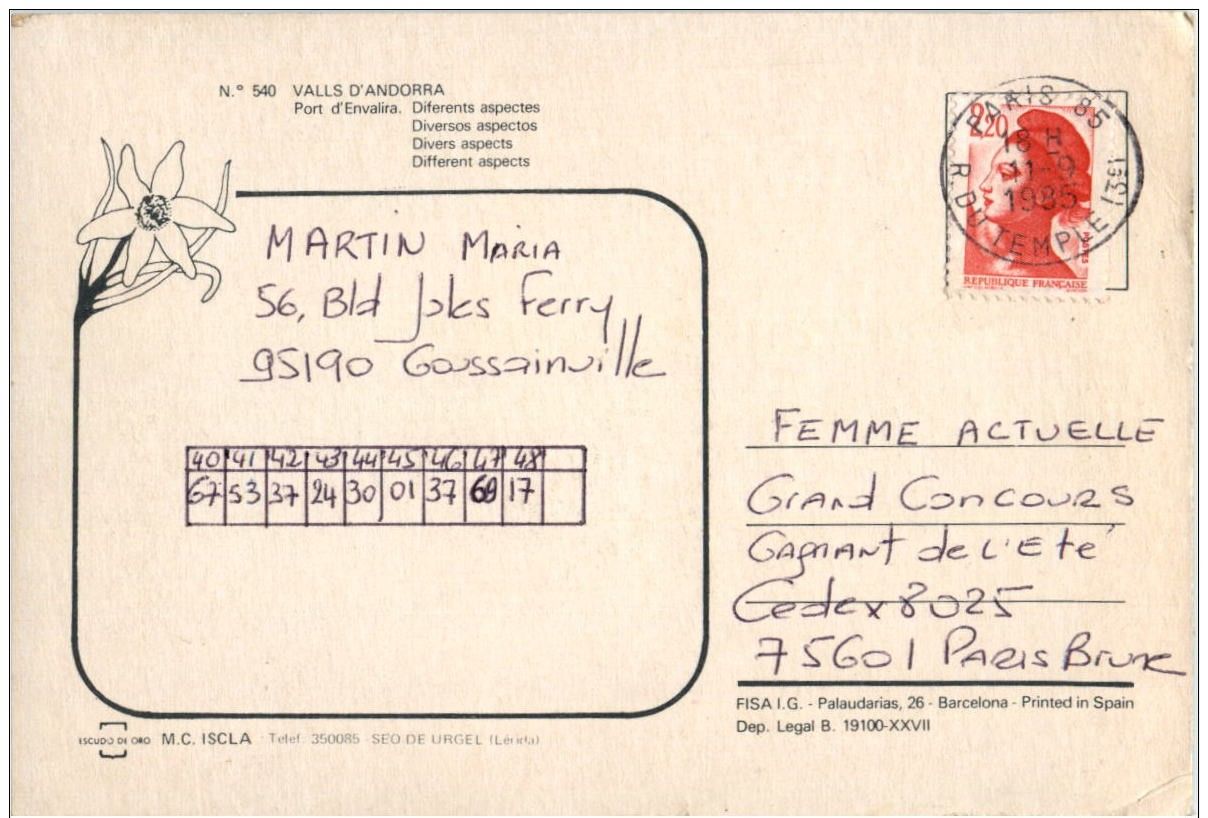 N.° 540 VALLS D'ANDORRA
Port d'Envalira. Diferents aspectes
Diversos aspectos
Divers aspects
Different aspects
PARIS 85
18 H
11-9
1985
R. DU TEMPLE (39)
2,20
POSTES
REPUBLIQUE FRANÇAISE
MARTIN MARIA
56, Bld Jules Ferry
95190 Goussainville
40 41 42 43 44 45 46 47 48
67 53 37 24 30 01 37 69 17
FEMME ACTUELLE
Grand Concours
Gagnant de l'Eté
Cedex 8025
75601 PARIS Brune
FISA I.G. - Palaudarias, 26 - Barcelona - Printed in Spain
Dep. Legal B. 19100-XXVII
ESCUDO DE ORO M.C. ISCLA - Telef. 350085 - SEO DE URGEL (Lérida)